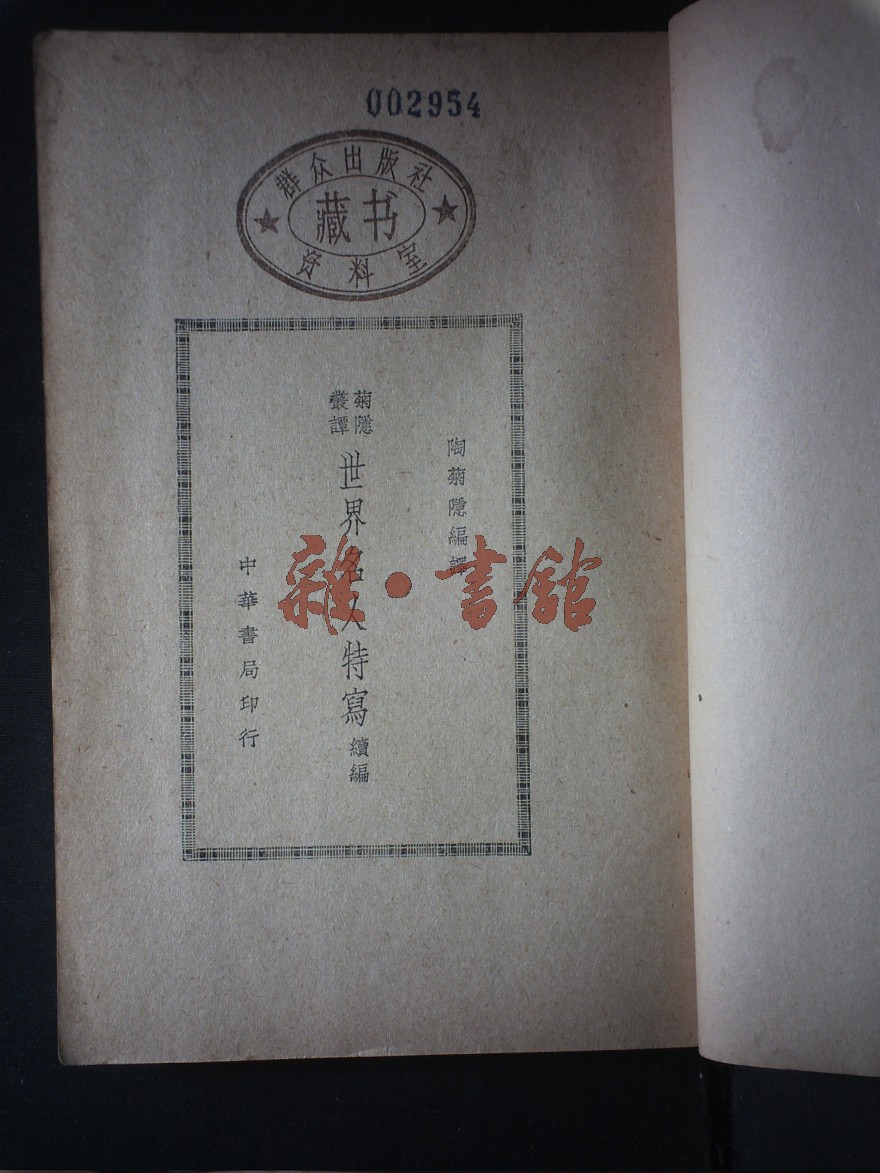 002954
群众出版社
藏书
资料室
陶菊隱編譯
菊隱
叢譚
世界名人特寫續編
中華書局印行
雜·書館